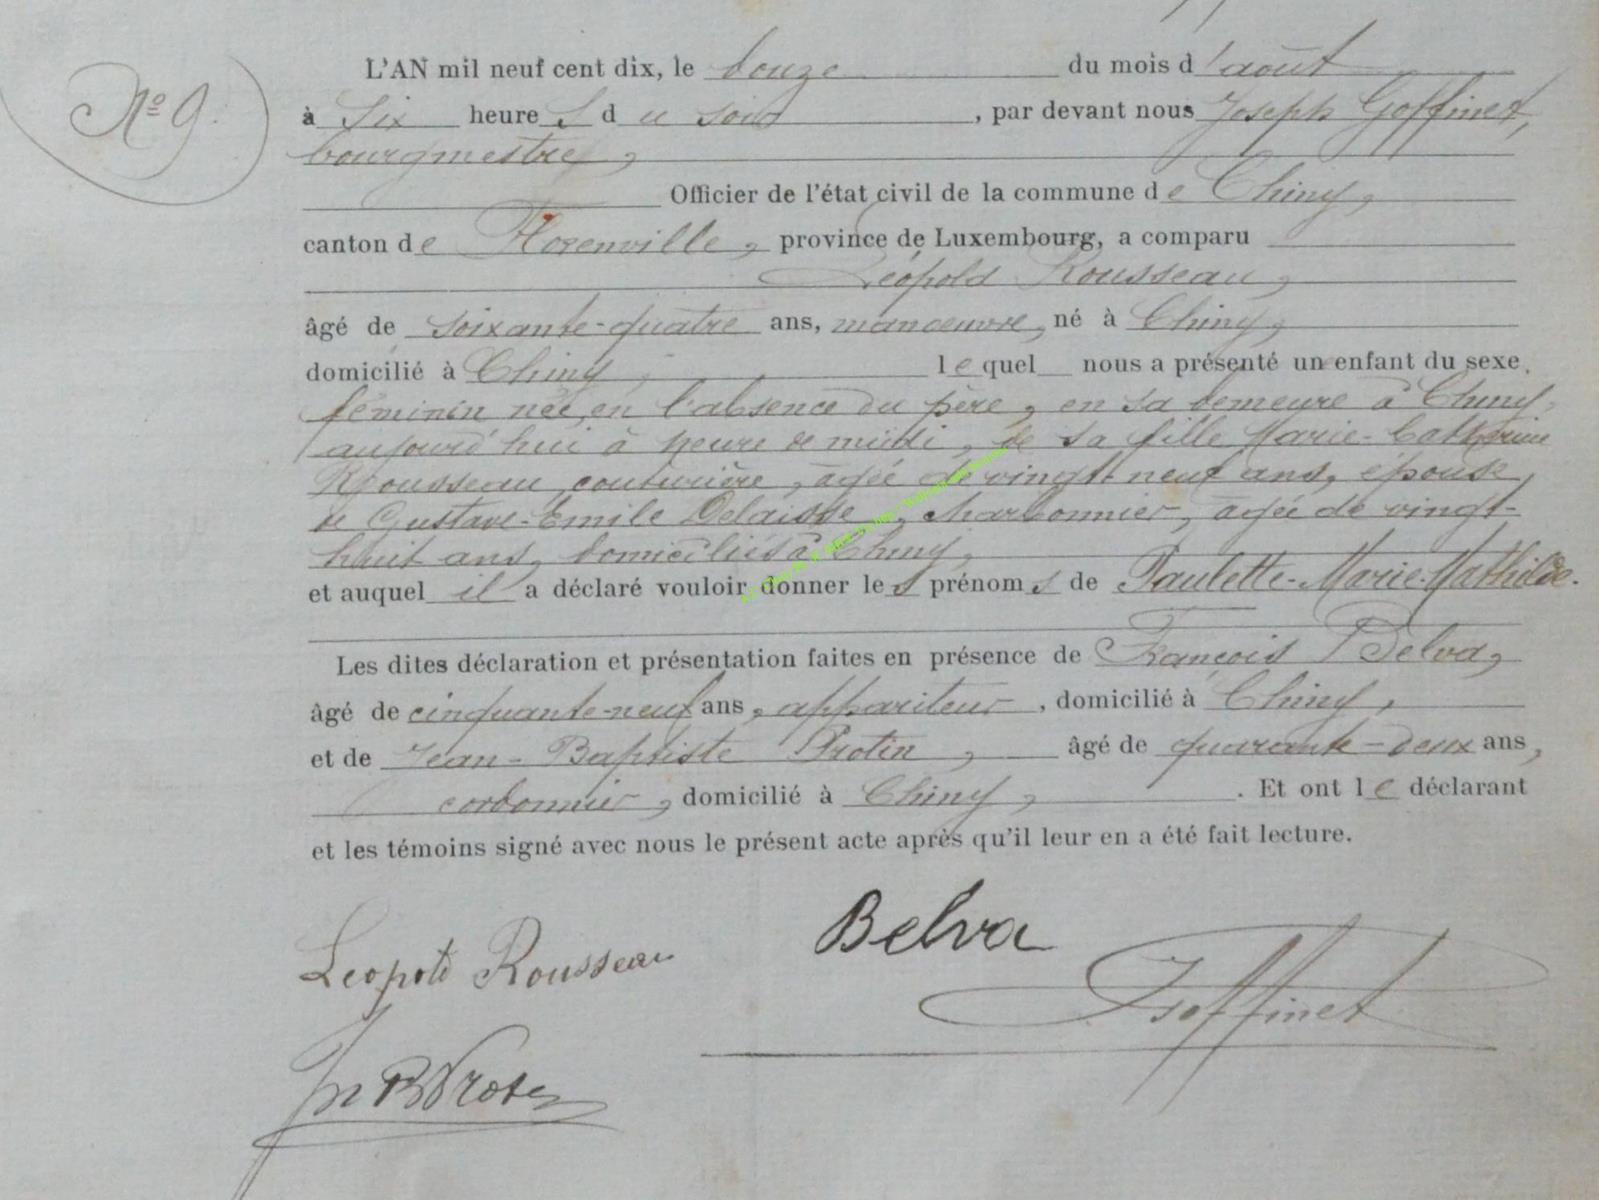 N° 9.
L'AN mil neuf cent dix, le douze du mois d'août
à six heures du soir, par devant nous Joseph Goffinet,
bourgmestre,
Officier de l'état civil de la commune de Chiny,
canton de Florenville, province de Luxembourg, a comparu
Léopold Rousseau,
âgé de soixante-quatre ans, manœuvre, né à Chiny,
domicilié à Chiny, lequel nous a présenté un enfant du sexe
féminin née, en l'absence du père, en sa demeure à Chiny,
aujourd'hui à heure de midi, de sa fille Marie-Catherine
Rousseau, couturière, âgée de vingt neuf ans, épouse
de Gustave-Emile Delaisse, charbonnier, âgée de vingt-
huit ans, domiciliés à Chiny,
et auquel il a déclaré vouloir donner les prénoms de Paulette-Marie-Mathilde.
Les dites déclaration et présentation faites en présence de François Belva,
âgé de cinquante-neuf ans, appariteur, domicilié à Chiny,
et de Jean-Baptiste Protin, âgé de quarante-deux ans,
cordonnier, domicilié à Chiny,. Et ont le déclarant
et les témoins signé avec nous le présent acte après qu'il leur en a été fait lecture.
Belva
Léopold Rousseau
JGoffinet
Jn B Protin